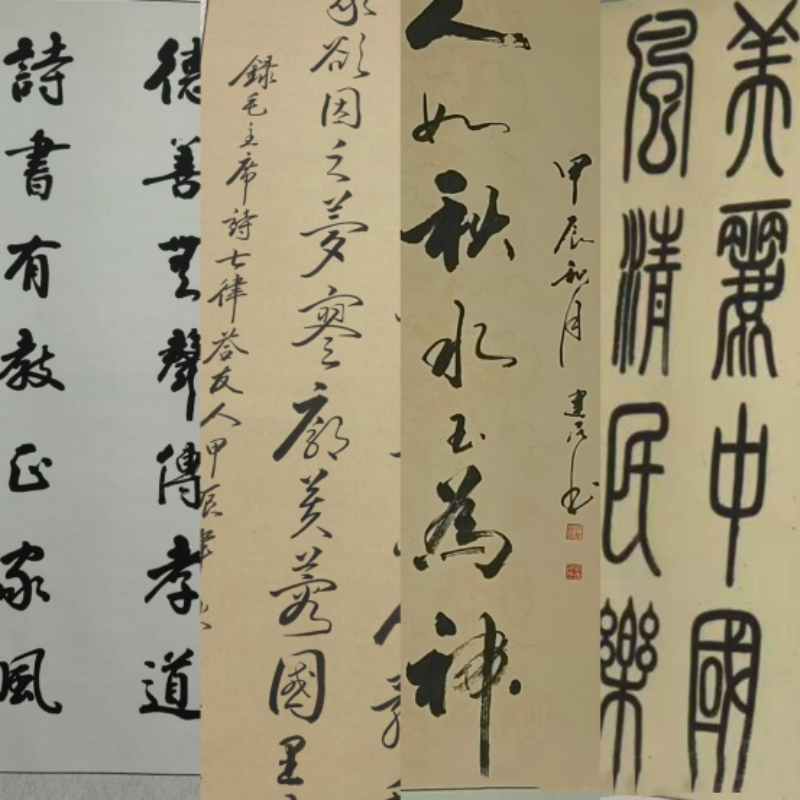 德善無聲傳孝道
詩書有教正家風
我欲因之夢寥廓芙蓉國里
錄毛主席詩七律答友人甲辰年
甲辰秋月建民书
人如秋水玉為神
美麗中國
風清民樂